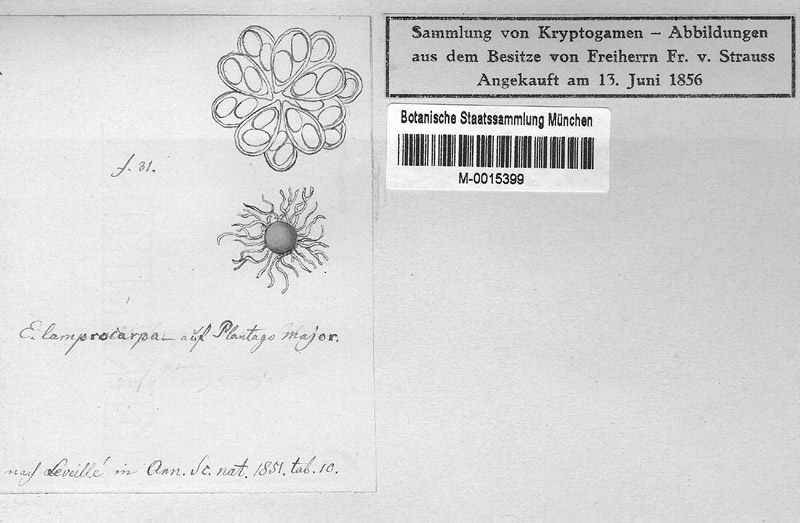 Sammlung von Kryptogamen – Abbildungen
aus dem Besitze von Freiherrn Fr. v. Strauss
Angekauft am 13. Juni 1856
Botanische Staatssammlung München
M-0015399
f. 31.
E. lamprocarpa auf Plantago major.
nach Leveillé in Ann. Sc. nat. 1851. tab. 10.